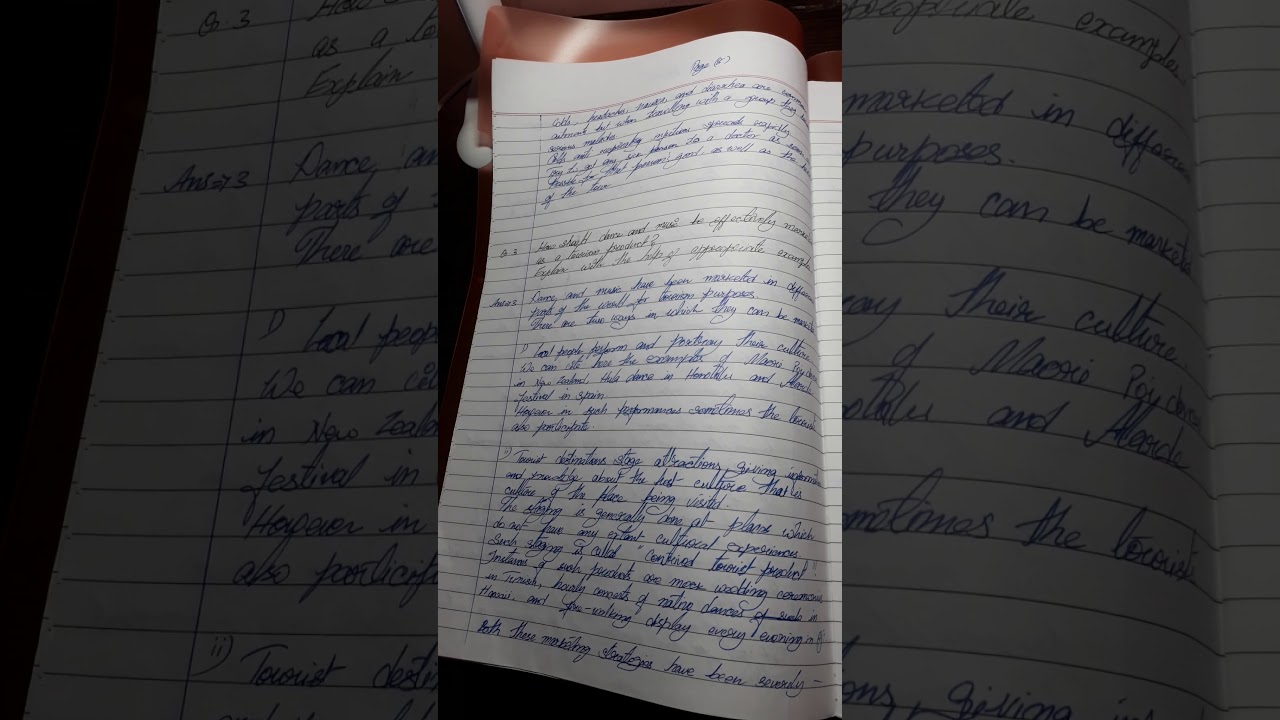 Page (8)
Cold, headaches, nausea and diarrhea are common
ailments but when travelling with a group they
serious matter.
Cold and respiratory infections spreads rapidly
try to get any sick person to a doctor as soon
possible for that person's good as well as the
of the tour.
Q.3 How should dance and music be effectively market
as a tourism product?
Explain with the help of appropriate example
Ans=3 Dance and music have been marketed in different
parts of the world for tourism purposes.
There are two ways in which they can be marketed
i) Local people perform and portray their culture.
We can cite here the examples of Maori Poy dance
in New Zealand, Hula dance in Honolulu and
festival in Spain
However in such performances sometimes the tourist
also participate.
ii) Tourist destinations stage attractions, giving information
and knowledge about the host culture that is
culture of the place being visited.
The staging is generally done at places which
do not have any extant cultural experiences.
Such staging is called "contrived tourist product".
Instances of such products are mock wedding ceremonies
in Tunish, hourly concerts of native dances of such in
Hawaii and fire-walking display every evening in Fiji
Both these marketing strategies have been severely -